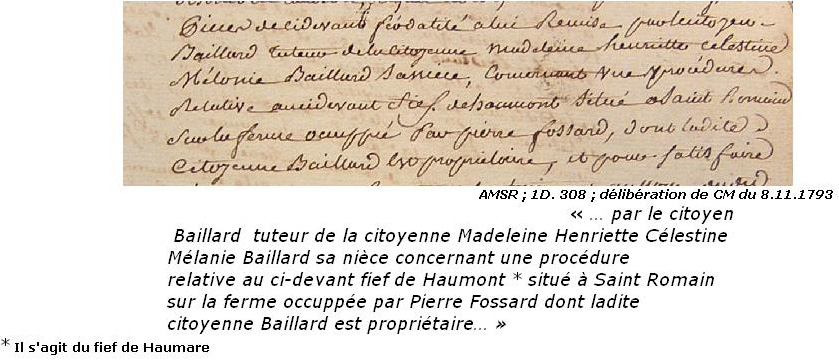 Pieces de cidevant féodalité a lui Remise par le citoyen
Baillard tuteur de la citoyenne madeleine henriette celestine
Mélanie Baillard sa niece, Concernant une procédure
Relative au cidevant fief de haumont situé a Saint Romain
Sur la ferme ocuppée Par pierre fossard, dont ladite
Citoyenne Baillard Est propriétaire, et pour satisfaire
AMSR ; 1D. 308 ; délibération de CM du 8.11.1793
« ... par le citoyen
Baillard tuteur de la citoyenne Madeleine Henriette Célestine
Mélanie Baillard sa nièce concernant une procédure
relative au ci-devant fief de Haumont * situé à Saint Romain
sur la ferme occuppée par Pierre Fossard dont ladite
citoyenne Baillard est propriétaire... »
* Il s'agit du fief de Haumare